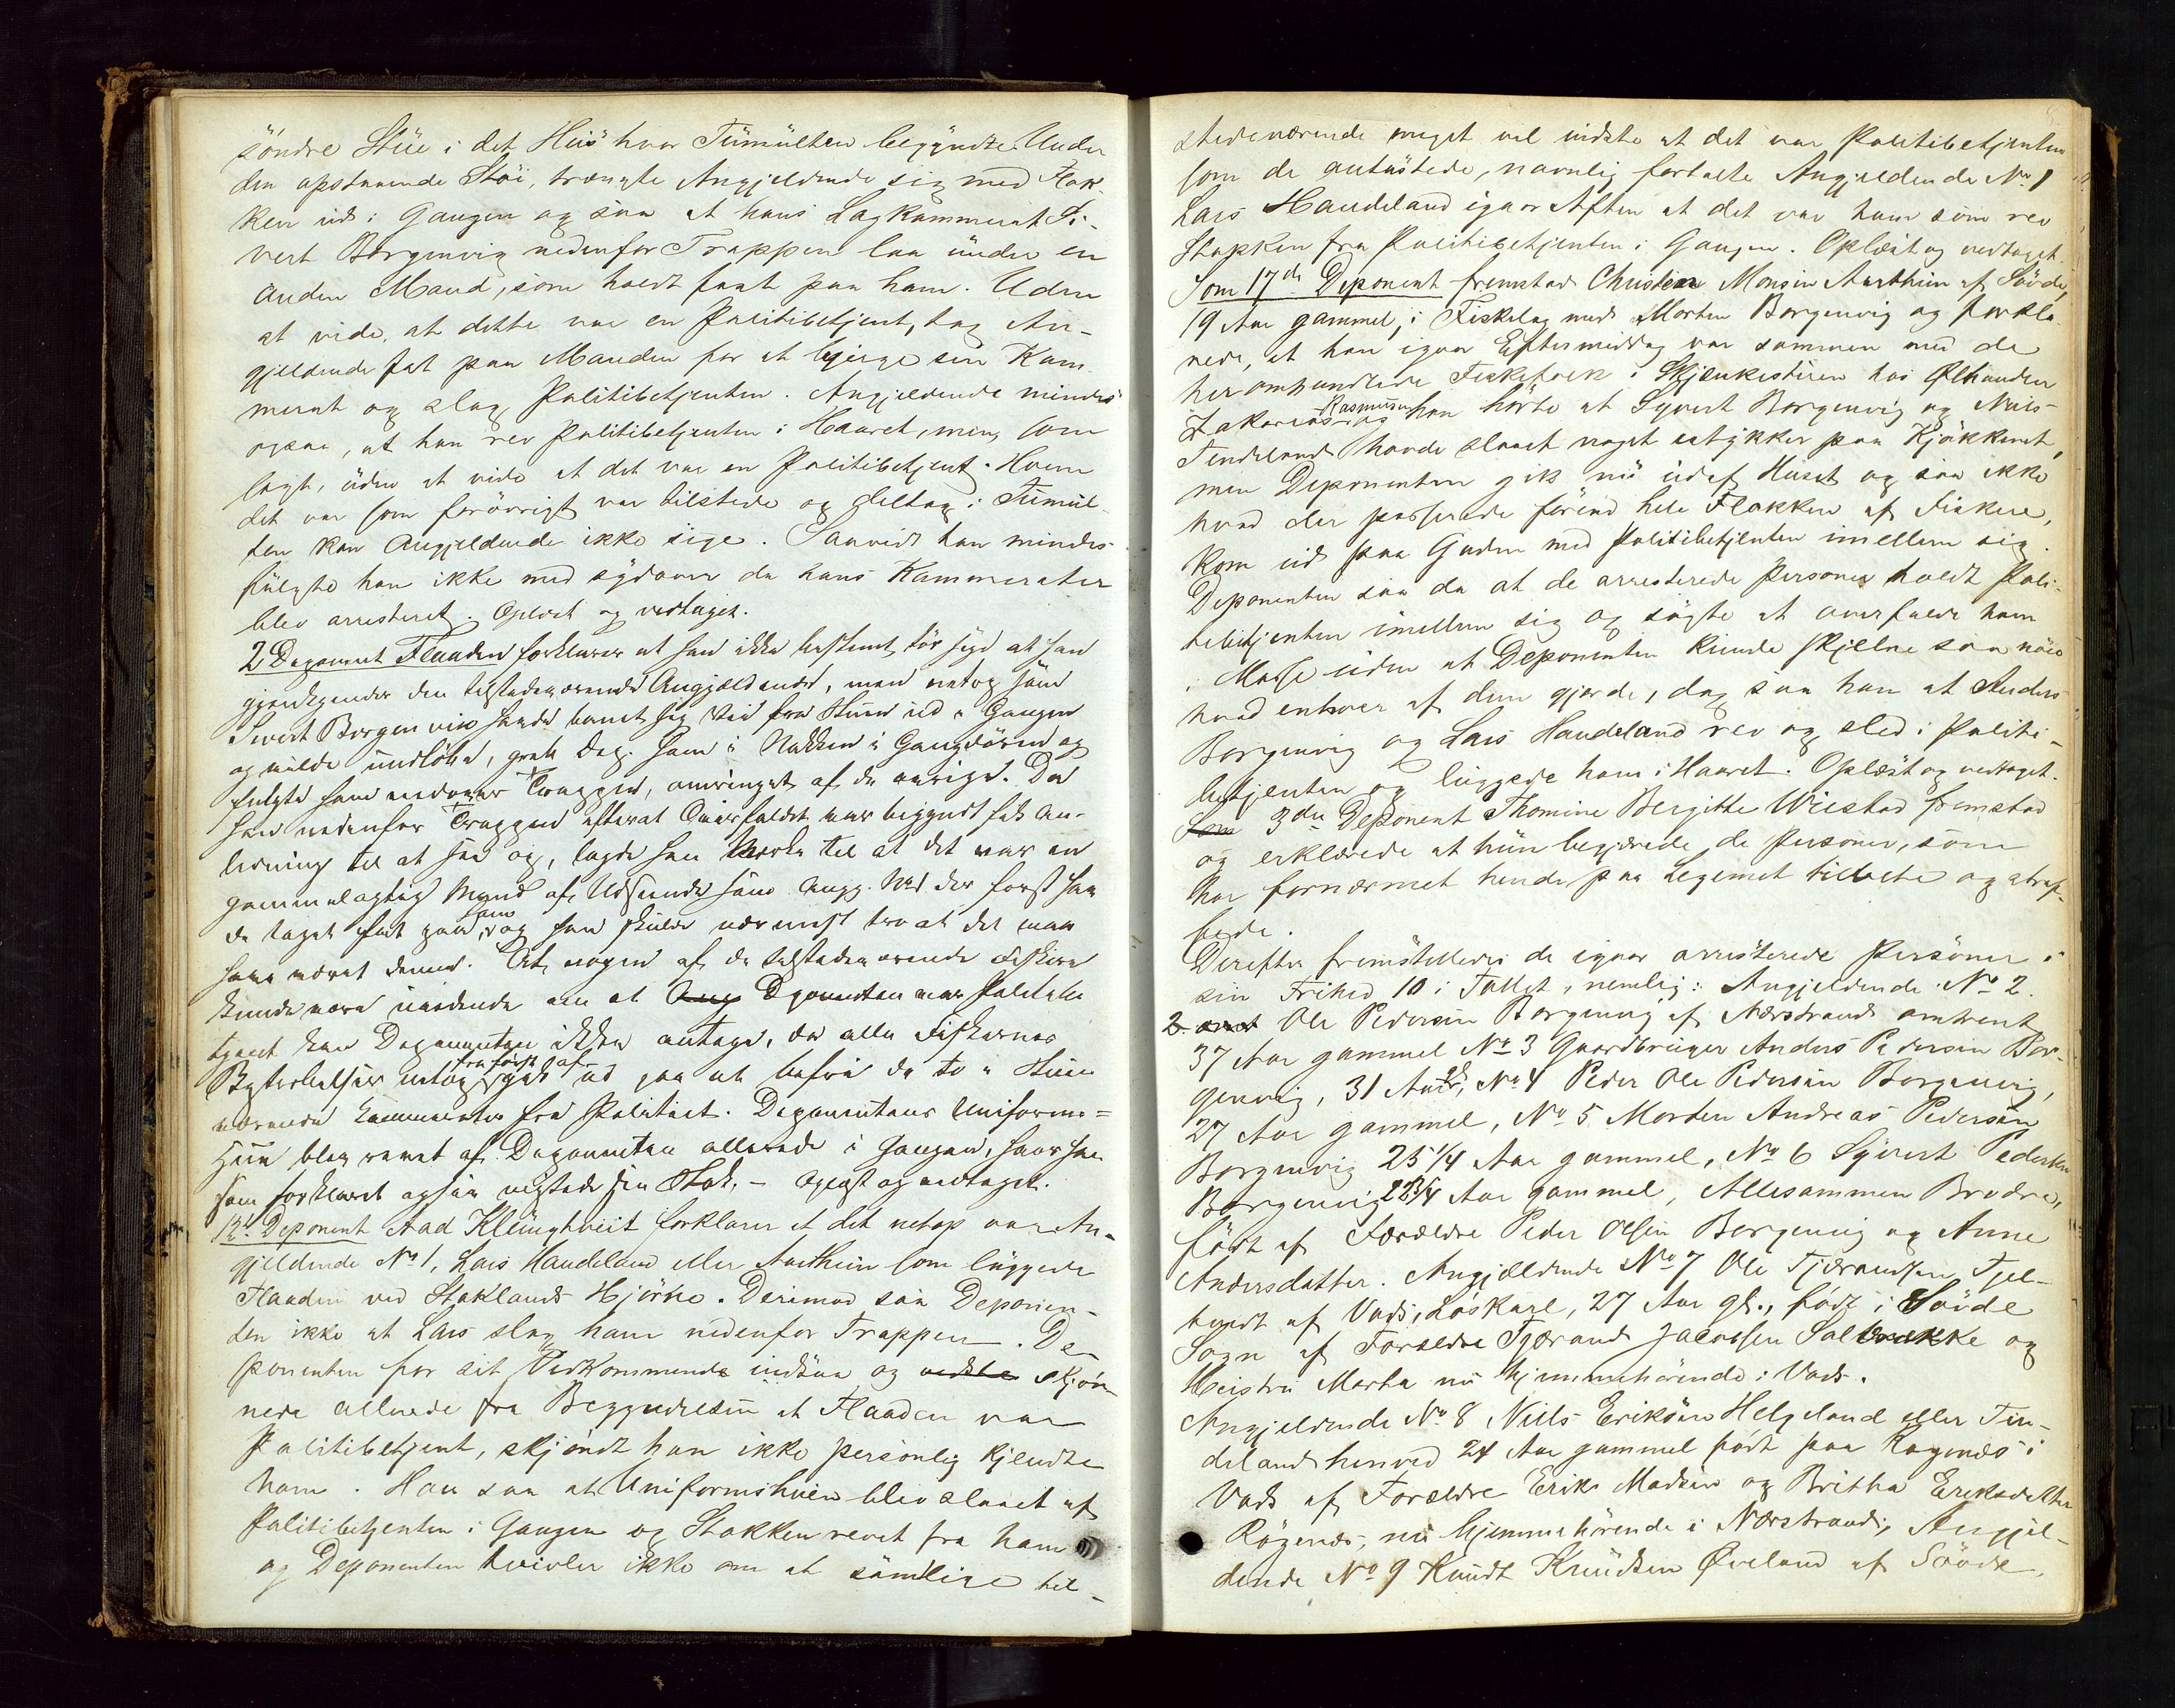 söndre Stue i det Huus hvor Tumulten begyndte. Under
den opstaaende Støi, trængte Angjeldende sig med Flok-
ken ud i Gangen og saa at hans Lagkammerat Si-
vert Borgenvig nedenfor Trappen laa under en
anden Mand, som holdt fast paa ham. Uden
at vide, at dette var en Politibetjent, tog An-
gjeldende fat paa Manden for at bjerge sin Kam
merat og slog Politibetjenten. Angjeldende mindes
ogsaa, at han rev Politibetjenten i Haaret, men, som
sagt, uden at vide at det var en Politibetjent. Hvem
det var som forövrigt var tilstede og deltog i Tumul-
ten kan Angjeldende ikke sige. Saavidt han mindes
fulgte han ikke med sydover da hans Kammerater
blev arresteret. Oplæst og vedtaget.
2 Deponent Flaaden forklarer at han ikke bestemt tör sige at han
gjenkjender den tilstedeværende Angjældende, men netop som
Sivert Borgenvik havde banet sig Vei fra Stuen ud i Gangen
og vilde undlöbe, greb Dep. ham i Nakken i Gangdören og
fulgte ham nedover Trappen, omringet af de övrige. Da
han nedenfor Trappen efterat Overfaldet var begyndt fik An-
ledning til at see op, lagde han Mærke til at det var en
gammelagtig Mand af Udseende som Angj. No 1 der först hav
de taget fat paa ham og han skulde nærmest tro at det maa
have været denne. At nogen af de tilstedeværende Fiskere
kunde være uvidende om at Deponenten var Politibe
tjent kan Deponenten ikke antage, da alle Fiskernes
Bestræbelser netop fra först af gik ud paa at befri de to i Stuen
værende Kammerater fra Politiet. Deponentens Uniforms=
Hue blev revet af Deponenten allerede i Gangen, hvor han
som forklaret ogsaa mistede sin Stok. – Oplæst og vedtaget.
12te Deponent Aad Klungtveit forklarer at det netop var An-
gjeldende No 1, Lars Haudeland eller Aartheim som luggede
Flaaden ved Stoklands Hjörne. Derimod saa Deponen-
den ikke at Lars slog ham nedenfor Trappen. De-
ponenten for sit Vedkommende indsaa og vidste skjön-
nede allerede fra Begyndelsen at Flaaden var
Politibetjent, skjöndt han ikke personlig kjendte
ham. Han saa at Uniformshuen blev slaaet af
Politibetjenten i Gangen og Stokken revet fra ham
og Deponenten tvivler ikke om at samtlige til-
stedeværende meget vel vidste at det var Politibetjenten
som de antastede, navnlig fortalte Angjeldende No 1
Lars Haudeland igaar Aften at det var ham som rev
Stokken fra Politibetjenten i Gangen. Oplæst og vedtaget.
Som 17de Deponent fremstod Christen Monsen Aartheim af Sövde,
19 Aar gammel, i Fiskelag med Morten Borgenvig og forkla-
rede, at han igaar Eftermiddag var sammen med de
her omhandlede Fiskefolk i Skjænkestuen hos Ølhandler
Zakarias Rasmusen og han hörte at Syvert Borgenvig og Niels
Tendeland havde slaaet noget istykker paa Kjökkenet,
men Deponenten gik nu ud af Huset og saa ikke
hvad der passerede förend hele Flokken af Fiskere,
kom ud paa Gaden med Politibetjenten imellem sig.
Deponenten saa da at de arresterede Personer holdt Poli-
tibetjenten imellem sig og sögte at overfalde ham
i Masse uden at Deponenten kunde skjelne saa nöie
hvad enhver af dem gjorde, dog saa han at Anders
Borgenvig og Lars Haudeland rev og sled i Politi-
betjenten og luggede ham i Haaret. Oplæst og vedtaget.
Som 3die Deponent Thomine Bergitte Wiestad fremstod
og erklærede at hun begjærede de Personer, som
har fornærmet hende paa Legemet tiltalte og straf-
fede.
Derefter fremstilledes de igaar arresterede Personer i
sin Frihed 10 i Tallet, nemlig: Angjeldende No 2.
Ole Pedersen Borgenvig af Nærstrand omtrent
37 Aar gammel No 3 Gaardbruger Anders Pedersen Bor-
genvig, 31 Aar gl., No 4 Peder Ole Pedersen Borgenvig,
27 Aar gammel, No 5 Morten Andreas Pedersen
Borgenvig 25 1/4 Aar gammel, No 6 Syvert Pedersen
Borgenvig 22 3/4 Aar gammel, Allesammen Brødre,
födt af Forældre Peder Olsen Borgenvig og Anne
Andersdatter. Angjældende No 7 Ole Tjærandsen Fjel-
tvedt af Vads, Löskarl, 27 Aar gl., födt i Søvde
Sogn af Forældre Tjærand Jacobsen Saltvække og
Hustru Marta nu hjemmehörende i Vads.
Angjeldende No 8 Niels Eriksen Helgeland eller Tin-
deland henved 24 Aar gammel födt paa Røgenæs i
Vads af Forældre Erik Madsen og Britha Eriksdatter
Røgenæs, nu hjemmehörende i Nærstrand, Angjel-
dende No 9 Knudt Knudsen Øveland af Søvde,